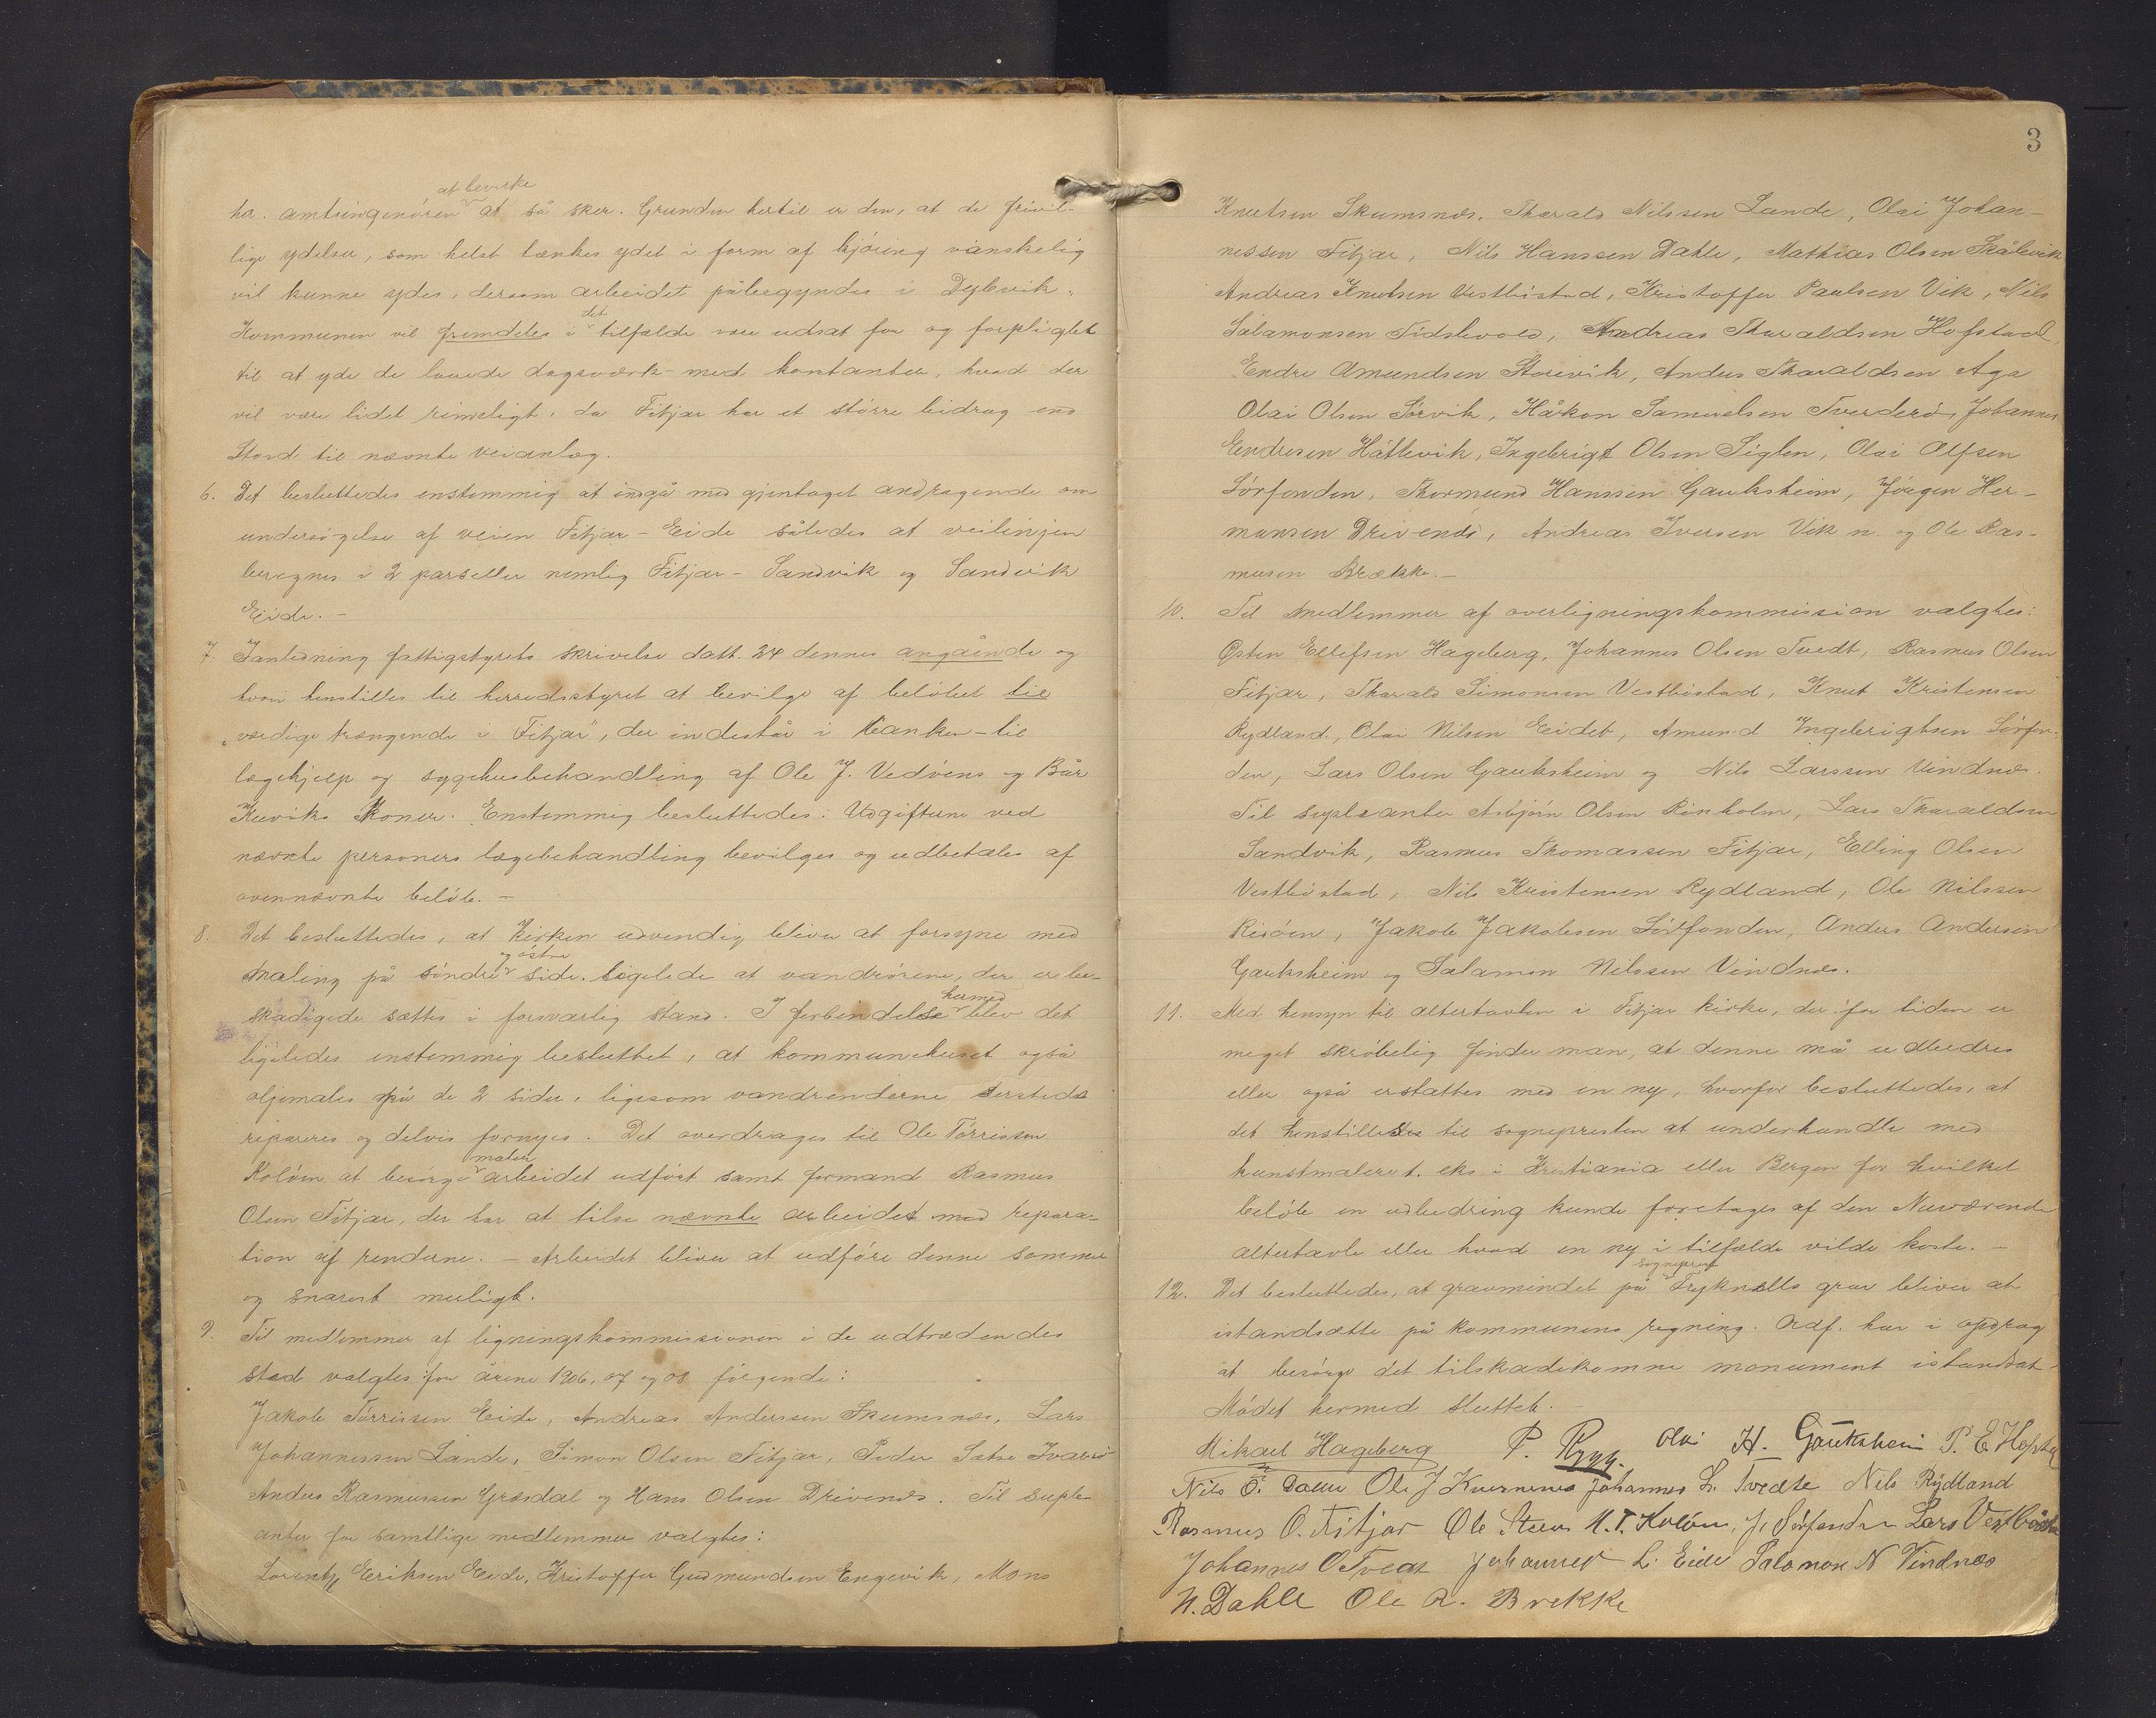 hr. amtsingeniören at bevirke at så sker. Grunden hertil er den, at de frivil-
lige ydelser, som helst tænkes ydet i form af kjöring vanskelig
vil kunne ydes, dersom arbeidet påbegyndes i Dybvik.
Kommunen vil fremdeles i det tilfælde være udsat for og forpligtet
til at yde de lovede dagsværk med kontanter, hvad der
vil være lidet rimeligt, da Fitjar har et större bidrag end
Stord til nævnte veianlæg.
6. Det besluttedes enstemmig at indgå med gjentaget andragende om
undersögelse af veien Fitjar - Eide således at veilinjen
beregnes i 2 parseller nemlig Fitjar - Sandvik og Sandvik
Eide. -
7. I anledning fattigstyrets skrivelse datt. 24 dennes angående og
hvori henstilles til herredsstyret at bevilge af belöbet til
„værdige trængende i Fitjar", der indestår i banken - til
lægehjælp og sygehusbehandling af Ole J. Vedöens og Bår
Koner. Enstemmig besluttedes: Udgifterne ved
nævnte personers lægebehandling bevilges og udbetales af
ovennævnte belöb. -
8. Det besluttedes, at kirken udvendig bliver at forsyne med
maling på söndre og östre side. Ligeledes at vandrörene, der er be-
skadigede sættes i forsvarlig stand. I forbindelse hermed blev det
ligeledes enstemmig besluttet, at kommunehuset også
oljemales på de 2 sider, ligesom vandrenderne dersteds
repareres og delvis fornyes. Det overdrages til Ole Törrissen
Kolöen at besörge malerarbeidet udfört samt formand Rasmus
Olsen Fitjar, der har at tilse nævnte arbeidet med repara-
tion af renderne. - Arbeidet bliver at udföre denne sommer
og snarest muligt.
9. Til medlemmer af ligningskommissionen i de udtrædendes
sted valgtes for årene 1906, 07 og 08 fölgende:
Jakob Törrissen Eide, Andreas Anderssen Skumsnæs, Lars
Johannessen Lande, Simon Olsen Fitjar, Peder Sætre
Anders Rasmussen Græsdal og Hans Olsen Drivenes. Til suple-
anter for samtlige medlemmer valgtes:
Lorentz Eriksen Eide, Kristoffer Gudmundsen Engevik, Mons
3
Knutsen Skumsnæs, Tharald Nilssen Lande, Olai Johan-
nessen Fitjar, Nils Hanssen Dahle, Mathias Olsen Skålevik
Andreas Knutsen Vestböstad, Kristoffer Paulsen Vik, Nils
Salamonsen Tidslevold, Andreas Tharaldsen Hofstad
Endre Amundsen Storevik, Anders Tharaldsen Aga
Olai Olsen Sörvik, Håkon Samuelsen Tverderö, Johannes
Endresen Håtlevik, Ingebrigt Olsen Siglen, Olai Olfsen
Sörfonden, Thormund Hanssen Gauksheim, Jörgen Her-
mansen Drivenes, Andreas Iversen Vik n. og Ole Ras-
musen Brække. -
10. Til medlemmer af overligningskommission valgtes:
Östen Ellefsen Hageberg, Johannes Olsen Tvedt, Rasmus Olsen
Fitjar, Tharald Simonsen Vestböstad, Knut Kristensen
Rydland, Olai Nilsen Eidet, Amund Ingebrigtsen Sörfon-
den, Lars Olsen Gauksheim og Nils Larssen Vindnæs.
Til supleanter Asbjörn Olsen Rimholm, Lars Tharaldsen
Sandvik, Rasmus Thomassen Fitjar, Elling Olsen
Vestböstad, Nils Kristensen Rydland, Ole Nilssen
Risöen, Jakob Jakobsen Sörfonden, Anders Andersen
Gauksheim og Salamon Nilssen Vindnes.
11. Med hensyn til altertavlen i Fitjar kirke, der for tiden er
meget skröbelig finder man, at denne må udbedres
eller også erstattes med en ny, hvorfor besluttedes, at
det henstilles til sognepresten at underhandle med
kunstmalere t. eks i Kristiania eller Bergen for hvilket
belöb en udbedring kunde foretages af den Nuværende
altertavle eller hvad en ny i tilfælde vilde koste. -
12. Det besluttedes, at gravmindet på sogneprest Fryknolls grav bliver at
istandsætte på kommunens regning. Ordf. har i opdrag
at besörge det tilskadekomne monument istandsat.
Mödet hermed sluttet.
Mikael Hageberg P. Rygg. Olai H. Gauksheim P. E.
Nils O. Ole J Kvernenes Johannes L. Tvedte Nils Rydland
Rasmus O. Fitjar Ole M. T. Kolöen, J. Sörfonden Lars Vestböstad
Johannes O Tvedt Johannes L. Eide Salomon N Vindnes
N. Dahle Ole R. Brekke